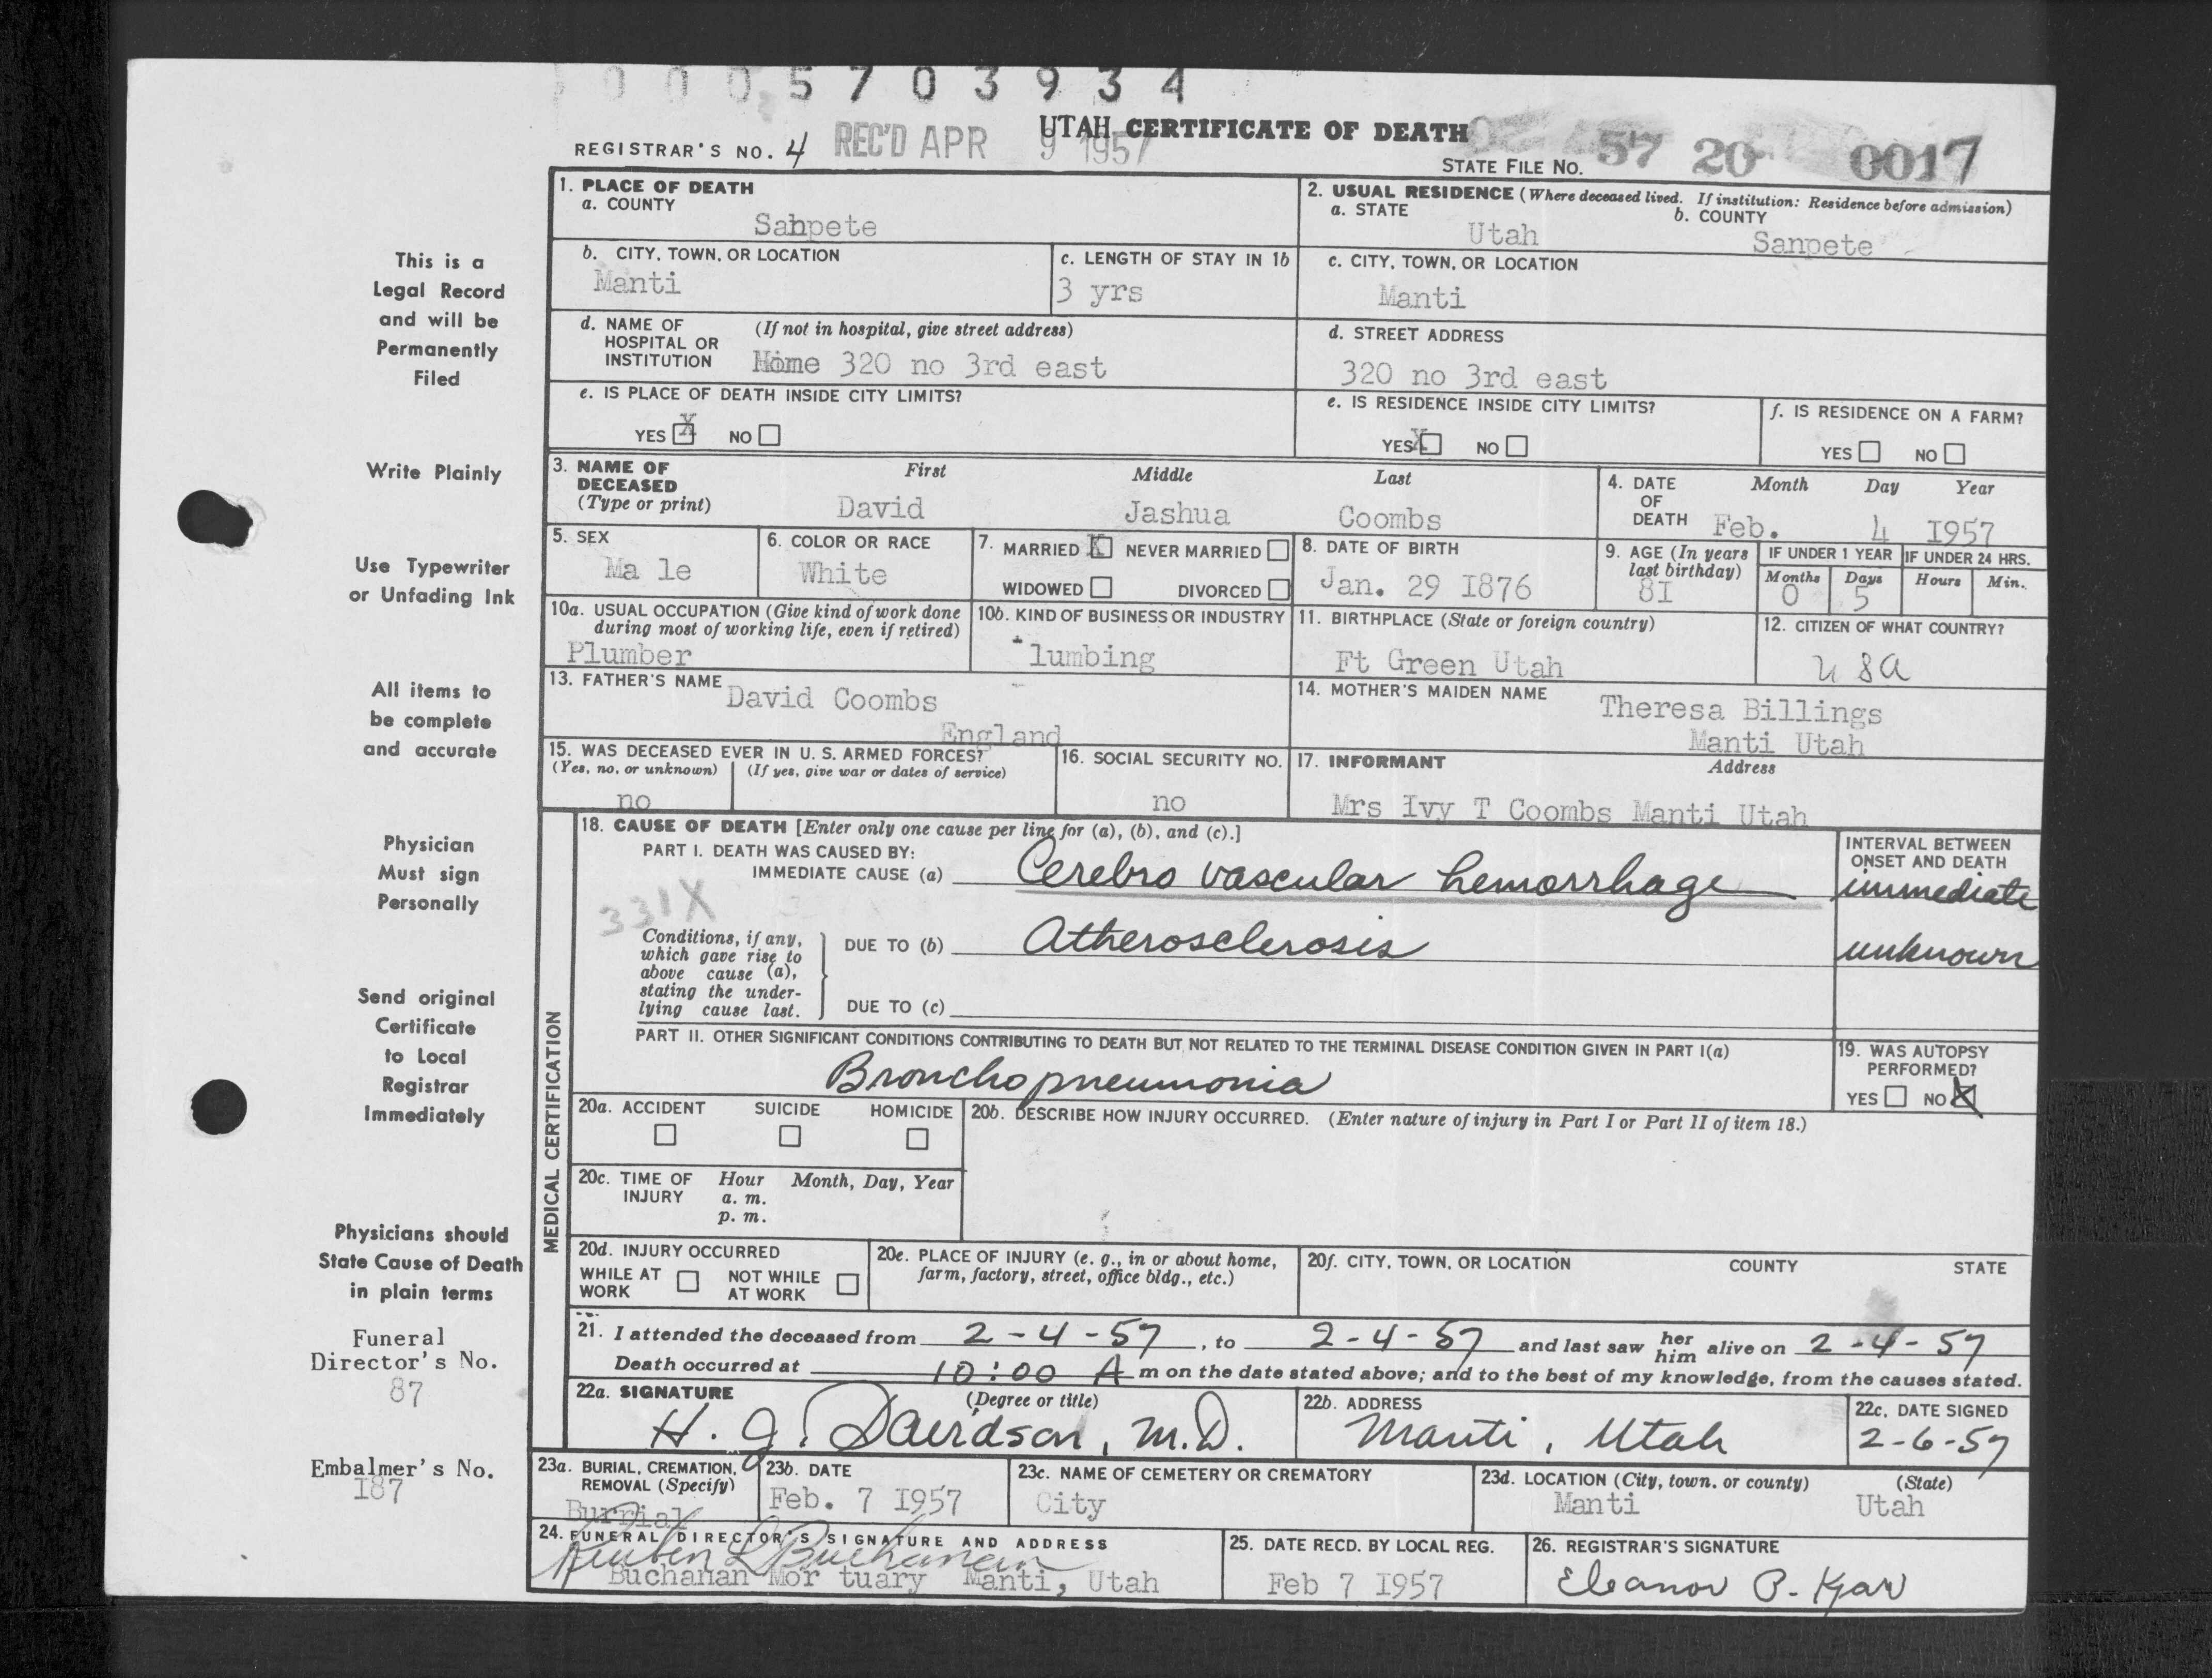 0005703934
UTAH CERTIFICATE OF DEATH
REGISTRAR'S NO. 4 REC'D APR 9 1957
STATE FILE NO. 57 20 0017
1. PLACE OF DEATH
a. COUNTY
Sanpete
2. USUAL RESIDENCE (Where deceased lived. If institution: Residence before admission)
a. STATE b. COUNTY
Utah Sanpete
b. CITY, TOWN, OR LOCATION
Manti
c. LENGTH OF STAY IN 1b
3 yrs
c. CITY, TOWN, OR LOCATION
Manti
d. NAME OF HOSPITAL OR INSTITUTION (If not in hospital, give street address)
Home 320 no 3rd east
d. STREET ADDRESS
320 no 3rd east
e. IS PLACE OF DEATH INSIDE CITY LIMITS?
YES X NO
e. IS RESIDENCE INSIDE CITY LIMITS?
YES X NO
f. IS RESIDENCE ON A FARM?
YES NO
3. NAME OF DECEASED (Type or print)
First Middle Last
David Jashua Coombs
4. DATE OF DEATH Month Day Year
Feb. 4 I957
5. SEX
Ma le
6. COLOR OR RACE
White
7. MARRIED X NEVER MARRIED
WIDOWED DIVORCED
8. DATE OF BIRTH
Jan. 29 I876
9. AGE (In years last birthday)
8I
IF UNDER 1 YEAR IF UNDER 24 HRS.
Months Days Hours Min.
0 5
10a. USUAL OCCUPATION (Give kind of work done during most of working life, even if retired)
Plumber
10b. KIND OF BUSINESS OR INDUSTRY
lumbing
11. BIRTHPLACE (State or foreign country)
Ft Green Utah
12. CITIZEN OF WHAT COUNTRY?
USA
13. FATHER'S NAME
David Coombs
England
14. MOTHER'S MAIDEN NAME
Theresa Billings
Manti Utah
15. WAS DECEASED EVER IN U. S. ARMED FORCES?
(Yes, no, or unknown) (If yes, give war or dates of service)
no
16. SOCIAL SECURITY NO.
no
17. INFORMANT Address
Mrs Ivy T Coombs Manti Utah
MEDICAL CERTIFICATION
18. CAUSE OF DEATH [Enter only one cause per line for (a), (b), and (c).]
PART I. DEATH WAS CAUSED BY:
IMMEDIATE CAUSE (a) Cerebro vascular hemorrhage
INTERVAL BETWEEN ONSET AND DEATH
immediate
331X
Conditions, if any, which gave rise to above cause (a), stating the underlying cause last.
DUE TO (b) Atherosclerosis
unknown
DUE TO (c)
PART II. OTHER SIGNIFICANT CONDITIONS CONTRIBUTING TO DEATH BUT NOT RELATED TO THE TERMINAL DISEASE CONDITION GIVEN IN PART I(a)
Bronchopneumonia
19. WAS AUTOPSY PERFORMED?
YES NO X
20a. ACCIDENT SUICIDE HOMICIDE
20b. DESCRIBE HOW INJURY OCCURRED. (Enter nature of injury in Part I or Part II of item 18.)
20c. TIME OF INJURY Hour Month, Day, Year
a. m.
p. m.
20d. INJURY OCCURRED
WHILE AT WORK NOT WHILE AT WORK
20e. PLACE OF INJURY (e. g., in or about home, farm, factory, street, office bldg., etc.)
20f. CITY, TOWN, OR LOCATION COUNTY STATE
21. I attended the deceased from 2-4-57, to 2-4-57 and last saw her him alive on 2-4-57
Death occurred at 10:00 A m on the date stated above; and to the best of my knowledge, from the causes stated.
22a. SIGNATURE (Degree or title)
H. J. Davidson, M.D.
22b. ADDRESS
Manti, Utah
22c. DATE SIGNED
2-6-57
23a. BURIAL, CREMATION, REMOVAL (Specify)
Burrial
23b. DATE
Feb. 7 I957
23c. NAME OF CEMETERY OR CREMATORY
City
23d. LOCATION (City, town, or county) (State)
Manti Utah
24. FUNERAL DIRECTOR'S SIGNATURE AND ADDRESS
Reuben L Buchanan
Buchanan Mor tuary Manti, Utah
25. DATE RECD. BY LOCAL REG.
Feb 7 I957
26. REGISTRAR'S SIGNATURE
Eleanor P. Kjar
This is a
Legal Record
and will be
Permanently
Filed
Write Plainly
Use Typewriter
or Unfading Ink
All items to
be complete
and accurate
Physician
Must sign
Personally
Send original
Certificate
to Local
Registrar
Immediately
Physicians should
State Cause of Death
in plain terms
Funeral
Director's No.
87
Embalmer's No.
I87